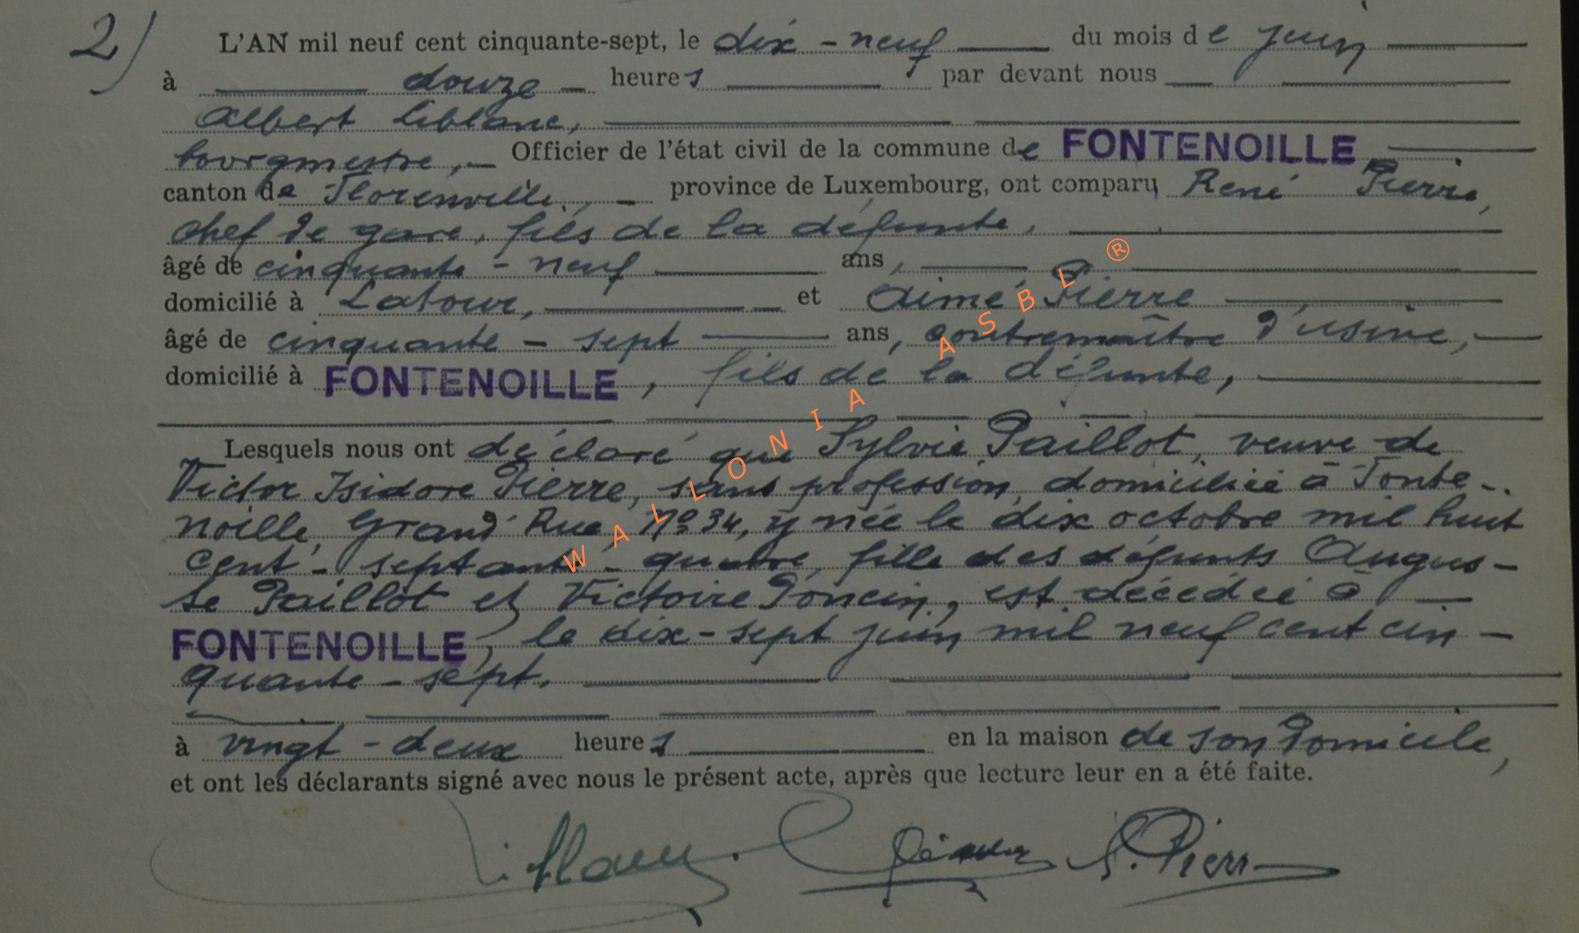 2) L'AN mil neuf cent cinquante-sept, le dix-neuf du mois de juin
à douze heures par devant nous
Albert Liblanc,
bourgmestre, Officier de l'état civil de la commune de FONTENOILLE,
canton de Florenville, province de Luxembourg, ont comparu René Pierre,
chef de gare, fils de la défunte,
âgé de cinquante-neuf ans,
domicilié à Latour, et Aimé Pierre
âgé de cinquante-sept ans, contremaître d'usine,
domicilié à FONTENOILLE, fils de la défunte,
Lesquels nous ont déclaré que Sylvie Paillot, veuve de
Victor Isidore Pierre, sans profession, domiciliée à Fonte-
noille, Grand'Rue, N° 34, y née le dix octobre mil huit
cent-septante-quatre, fille des défunts Augus-
te Paillot et Victoire Poncin, est décédée à
FONTENOILLE, le dix-sept juin mil neuf cent cin-
quante-sept.
à vingt-deux heures en la maison de son domicile,
et ont les déclarants signé avec nous le présent acte, après que lecture leur en a été faite.
WALLONIA ASBL ®